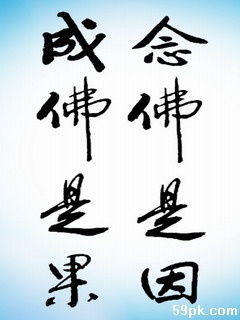 念佛是因
成佛是果
59pk.com